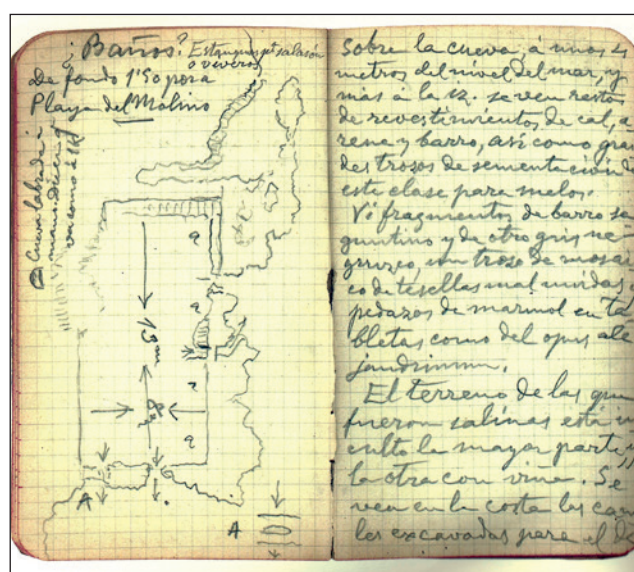 ¿Baños? Estanques pª salasón
o viveros
De fondo 1'50 para
Playa del Molino
Cueva labrada á
mano
como á 1 K
a
a
13 m
8 m
a
a
A
A
Sobre la cueva, á unos 4
metros del nivel del mar, y
más á la iz. se ven restos
de revestimientos de cal, a
rena y barro, así como gran
des trosos de sementación de
esta clase para
Ví fragmentos de barro sa
guntino y de otro gris ne
gruzco, un troso de mosai
co de tesellas mal unidas,
pedazos de marmol en ta
bletas como del opus ale
jandrinum.
El terreno de las que
fueron salinas está in
culto la mayor parte y
la otra con viña. Se
ven en la costa los cana
les excavados para el